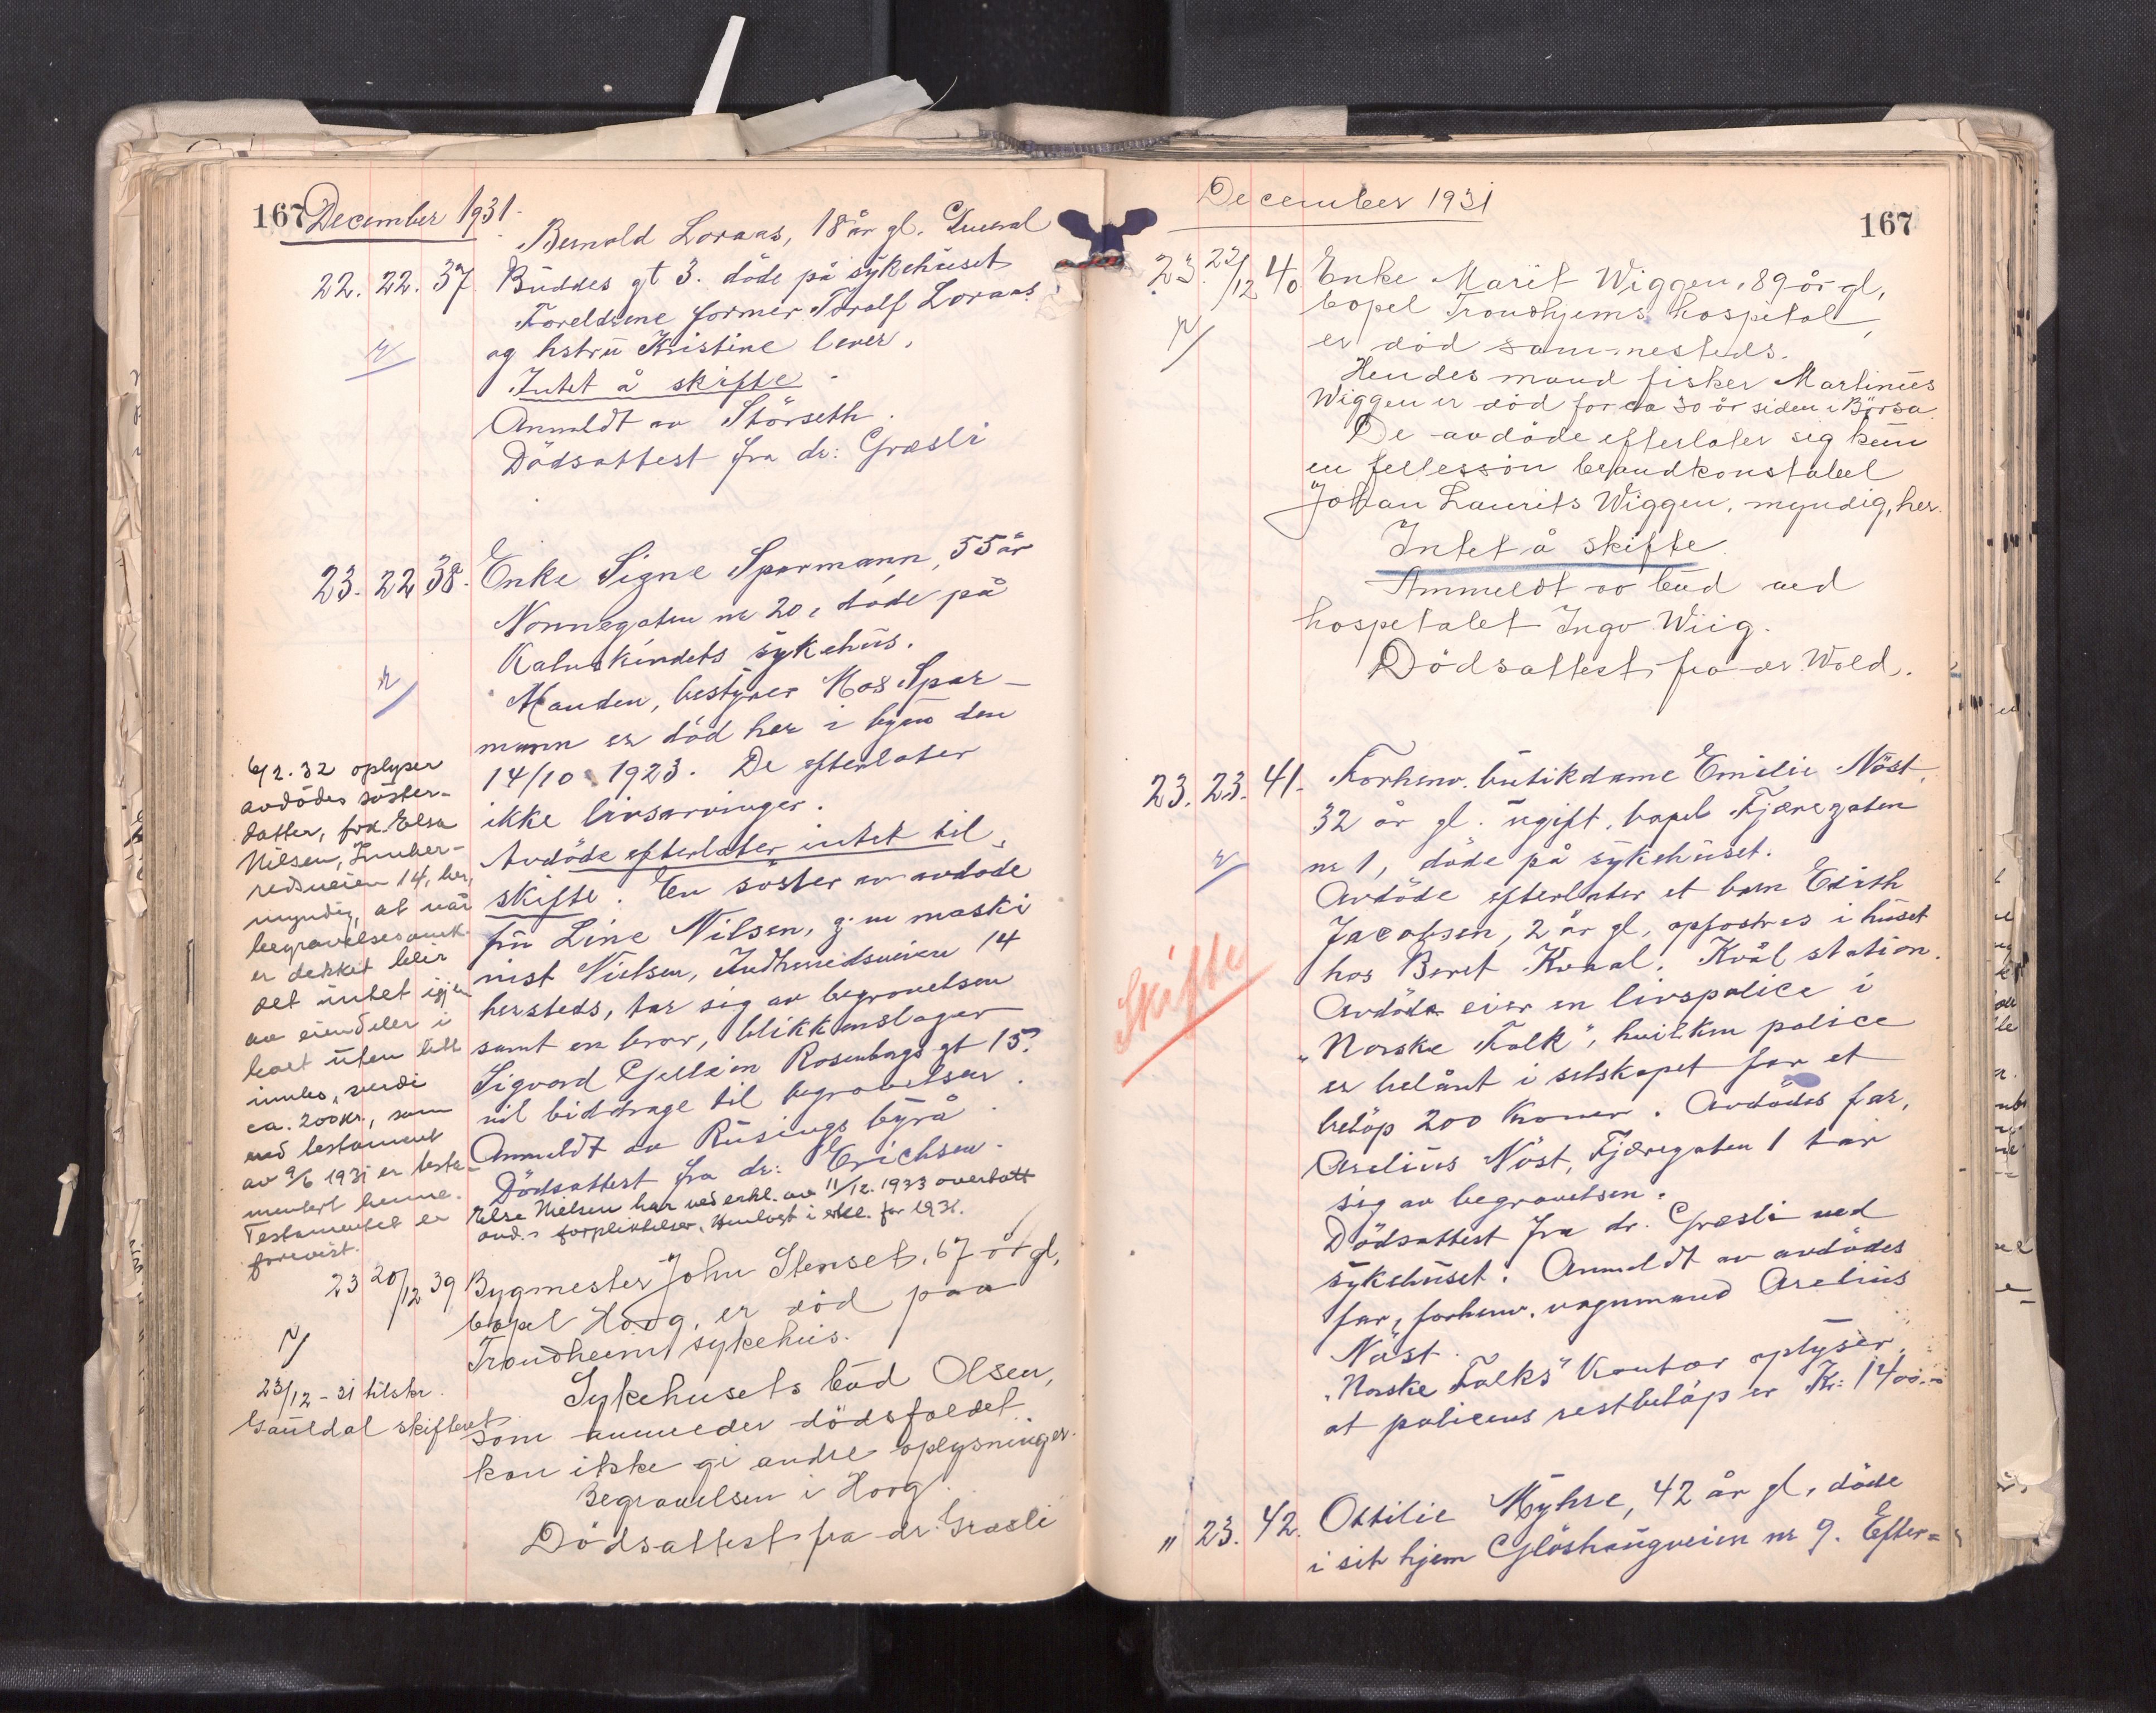 167 December 1931.
Bernold Loraas, 18 år gl. General
22. 22. 37. Buddes gt 3. døde på sykehuset
Foreldrene former Toralf Loraas
og hstru Kristine lever.
Intet å skifte.
Anmeldt av Störseth.
Dødsattest fra dr: Græsli
23. 22 38. Enke Signe Sparmann, 55 år
Nonnegaten nr 20, døde på
Kalvskindets sykehus.
Manden, bestyrer Spar-
mann er død her i byen den
14/10 1923. De efterlater
ikke livsarvinger.
Avdöde efterlater intet til
skifte. En søster av avdøde
fru Line Nilsen, g. m maski
nist Nielsen, Indherredsveien 14
hersteds, tar sig av begravelsen
samt en bror, blikkenslager
Sigvard Rosenborgs gt 15?
vil biddrage til begravelsen.
Anmeldt av Rüsings byrå.
Dödsattest fra dr: Erichsen.
Else Nielsen har ved erkl. av 11/12. 1933 overtatt
avd.s forpliktelser, for 1931.
6/2.32 oplyser
avdödes søster-
datter, frk. Elsa
Nilsen, Innher-
redsveien 14, her,
myndig, at når
begravelsesomk.
er dekket blir
det intet igjen
av eiendeler i
boet uten litt
innbo, verdi
ca. 200 kr., som
ved testament
av 9/6 1931 er testa-
mentert henne.
Testamentet er
forevist.
23 20/12 39 Bygmester John Stenset, 67 år gl,
bopel Horg, er död paa
Trondheim sykehus.
Sykehusets bud Olsen,
som anmelder dödsfaldet
kan ikke gi andre oplysninger.
Begravelsen i Horg.
Dödsattest fra dr. Græsli
23/12 - 31 tilskr.
Gauldal skifteret
December 1931
167
23. 23/12 40 Enke Marit Wiggen, 89 år gl,
bopel Trondhjems hospital,
er död sammesteds.
Hendes mand fisker Martinus
Wiggen er död for ca 30 år siden i Börsa.
De avdöde efterlater sig kun
en fellessön brandkonstabel
Johan Laurits Wiggen, myndig, her.
Intet å skifte.
Anmeldt av bud ved
hospitalet Ingv. Wiig.
Dödsattest fra dr. Wold.
23. 23. 41. Forhenv. butikdame Emilie Nöst,
32 år gl. ugift, bopel Fjæregaten
nr 1, döde på sykehuset.
Avdöde efterlater et barn Edith
Jacobsen, 2 år gl, opfostres i huset
hos Beret Kvaal. Kvål station.
Avdöde eier en livspolice i
"Norske Folk", hvilken police
er belånt i selskapet for et
belöp 200 kroner. Avdödes far,
Arelius Nöst, Fjæregaten 1 tar
sig av begravelsen.
Dödsattest fra dr. Græsli ved
sykehuset. Anmeldt av avdödes
far, forhenv. vognmand Arelius
Nöst.
"Norske Folks" kontor oplyser
at policens restbelöp er Kr: 1400.-
Skifte
" 23. 42. Ottilie Myhre, 42 år gl, döde
i sit hjem Glöshaugveien nr 9. Efter=